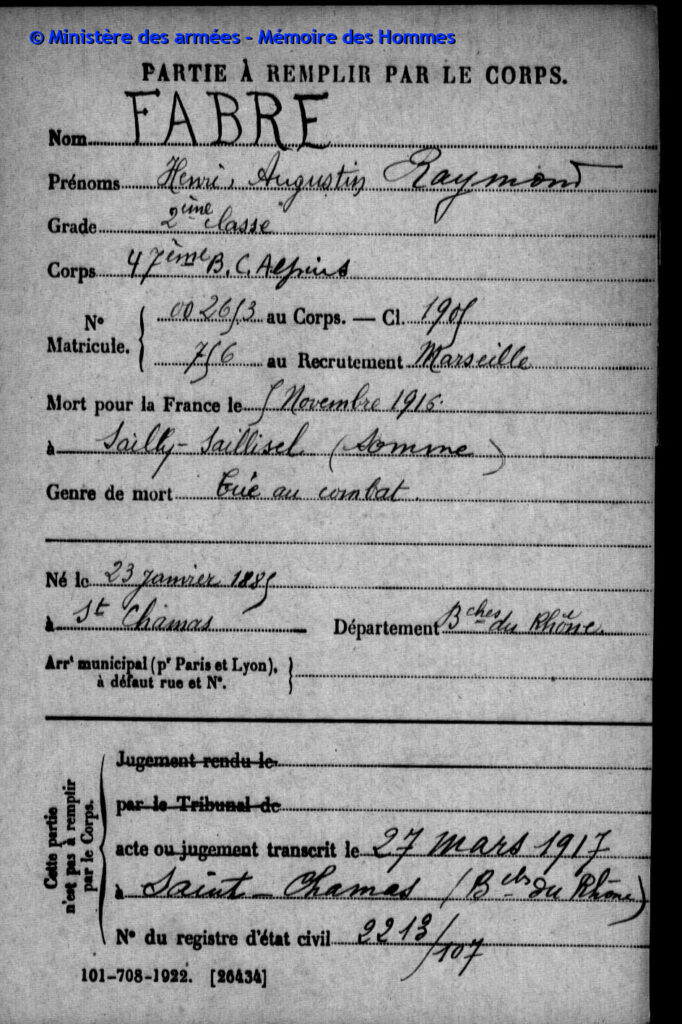 © Ministère des armées - Mémoire des Hommes
PARTIE À REMPLIR PAR LE CORPS.
Nom FABRE
Prénoms Henri, Augustin Raymond
Grade 2ème classe
Corps 47ème B. C. Alpins
N° Matricule. 002653 au Corps. — Cl. 1905
756 au Recrutement Marseille
Mort pour la France le 5 Novembre 1916
à Sailly-Saillisel (Somme)
Genre de mort Tué au combat.
Né le 23 janvier 1885
à St Chamas Département Bches du Rhône
Arrt municipal (pr Paris et Lyon), à défaut rue et N°.
Cette partie n'est pas à remplir par le Corps.
Jugement rendu le
par le Tribunal de
acte ou jugement transcrit le 27 mars 1917
à Saint-Chamas (Bches du Rhône)
N° du registre d'état civil 2213/107
101-708-1922. [26434]